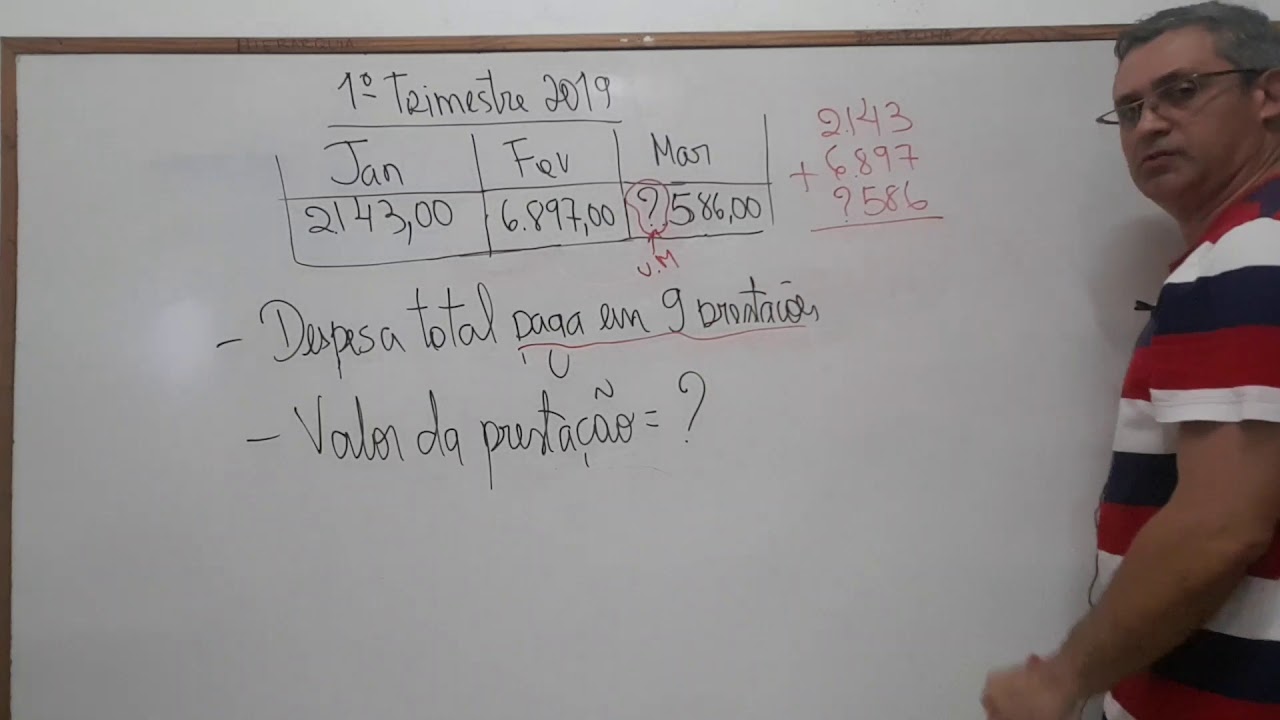 HIERARQUIA
DISCIPLINA
1º Trimestre 2019
Jan Fev Mar
2143,00 6.897,00 ?586,00
U.M
2.143
+ 6.897
?586
- Despesa total paga em 9 prestações
- Valor da prestação = ?